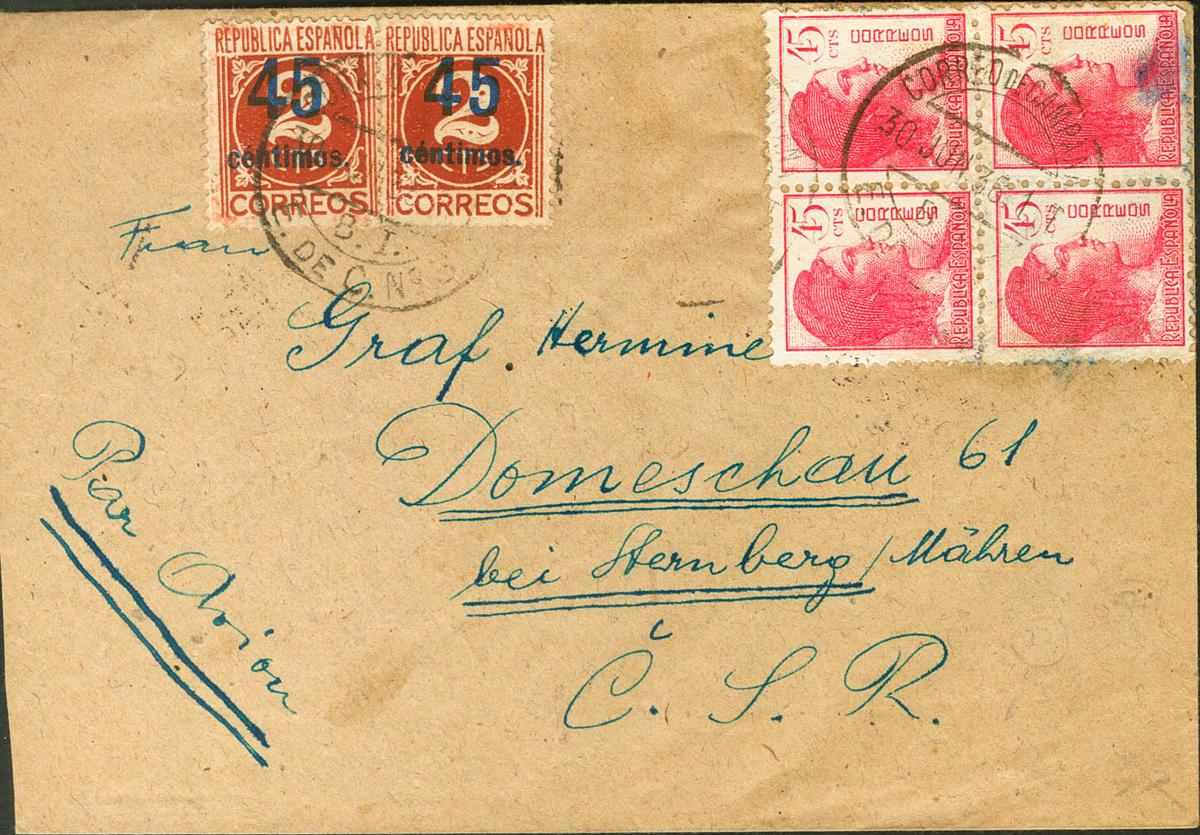 REPUBLICA ESPAÑOLA REPUBLICA ESPAÑOLA
2 2
45 45
céntimos. céntimos.
CORREOS CORREOS
45 CTS CORREOS REPUBLICA ESPAÑOLA
45 CTS CORREOS REPUBLICA ESPAÑOLA
45 CTS CORREOS REPUBLICA ESPAÑOLA
45 CTS CORREOS REPUBLICA ESPAÑOLA
CORREO DE CAMPAÑA
30 JUN
B. I.
E. DE C. Nº 3
Frau
Graf Hermine
Domeschau 61
bei Sternberg / Mähren
Č. S. R.
Par Avion